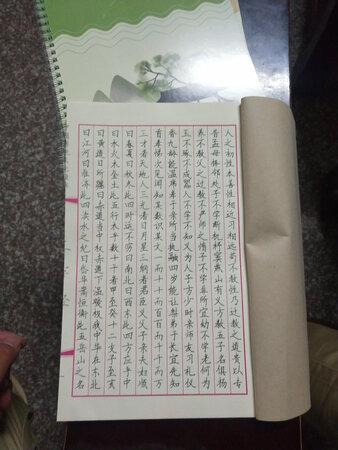 人之初性本善性相近习相远苟不教性乃迁教之道贵以专
昔孟母择邻处子不学断机杼窦燕山有义方教五子名俱扬
养不教父之过教不严师之惰子不学非所宜幼不学老何为
玉不琢不成器人不学不知义为人子方少时亲师友习礼仪
香九龄能温席孝于亲所当执融四岁能让梨弟于长宜先知
首孝悌次见闻知某数识某文一而十十而百百而千千而万
三才者天地人三光者日月星三纲者君臣义父子亲夫妇顺
曰春夏曰秋冬此四时运不穷曰南北曰西东此四方应乎中
曰水火木金土此五行本乎数十干者甲至癸十二支子至亥
曰黄道日所躔曰赤道当中权赤道下温暖极我中华在东北
曰江河曰淮济此四渎水之纪曰岱华嵩恒衡此五岳山之名